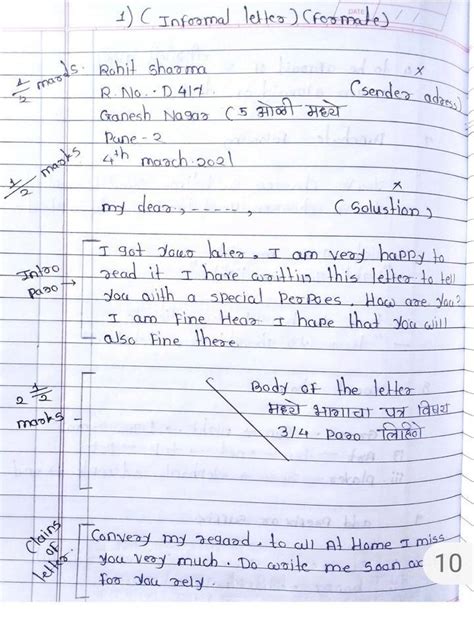 1) (Informal letter) (Formate)
DATE
1/2 marks. Rohit Sharma x
R. No. - D 417 (sender adress)
Ganesh Nagar (5 ओळी मध्ये
Pune - 2
1/2 marks 4th march. 2021
x
my dear, - - - - -, (Solustion)
I got your later, I am very happy to
Intro para → read it I have writtin this letter to tell
you with a special Perpoes. How are you?
I am Fine Hear I hape that you will
also Fine there.
Body of the letter
2 1/2 marks - मध्ये भागाचा पत्र विषय
3/4 - para लिहिणे
Clains of letter. Convery my regard, to all At Home I miss
you very much. Do write me soon
for you rely.
10